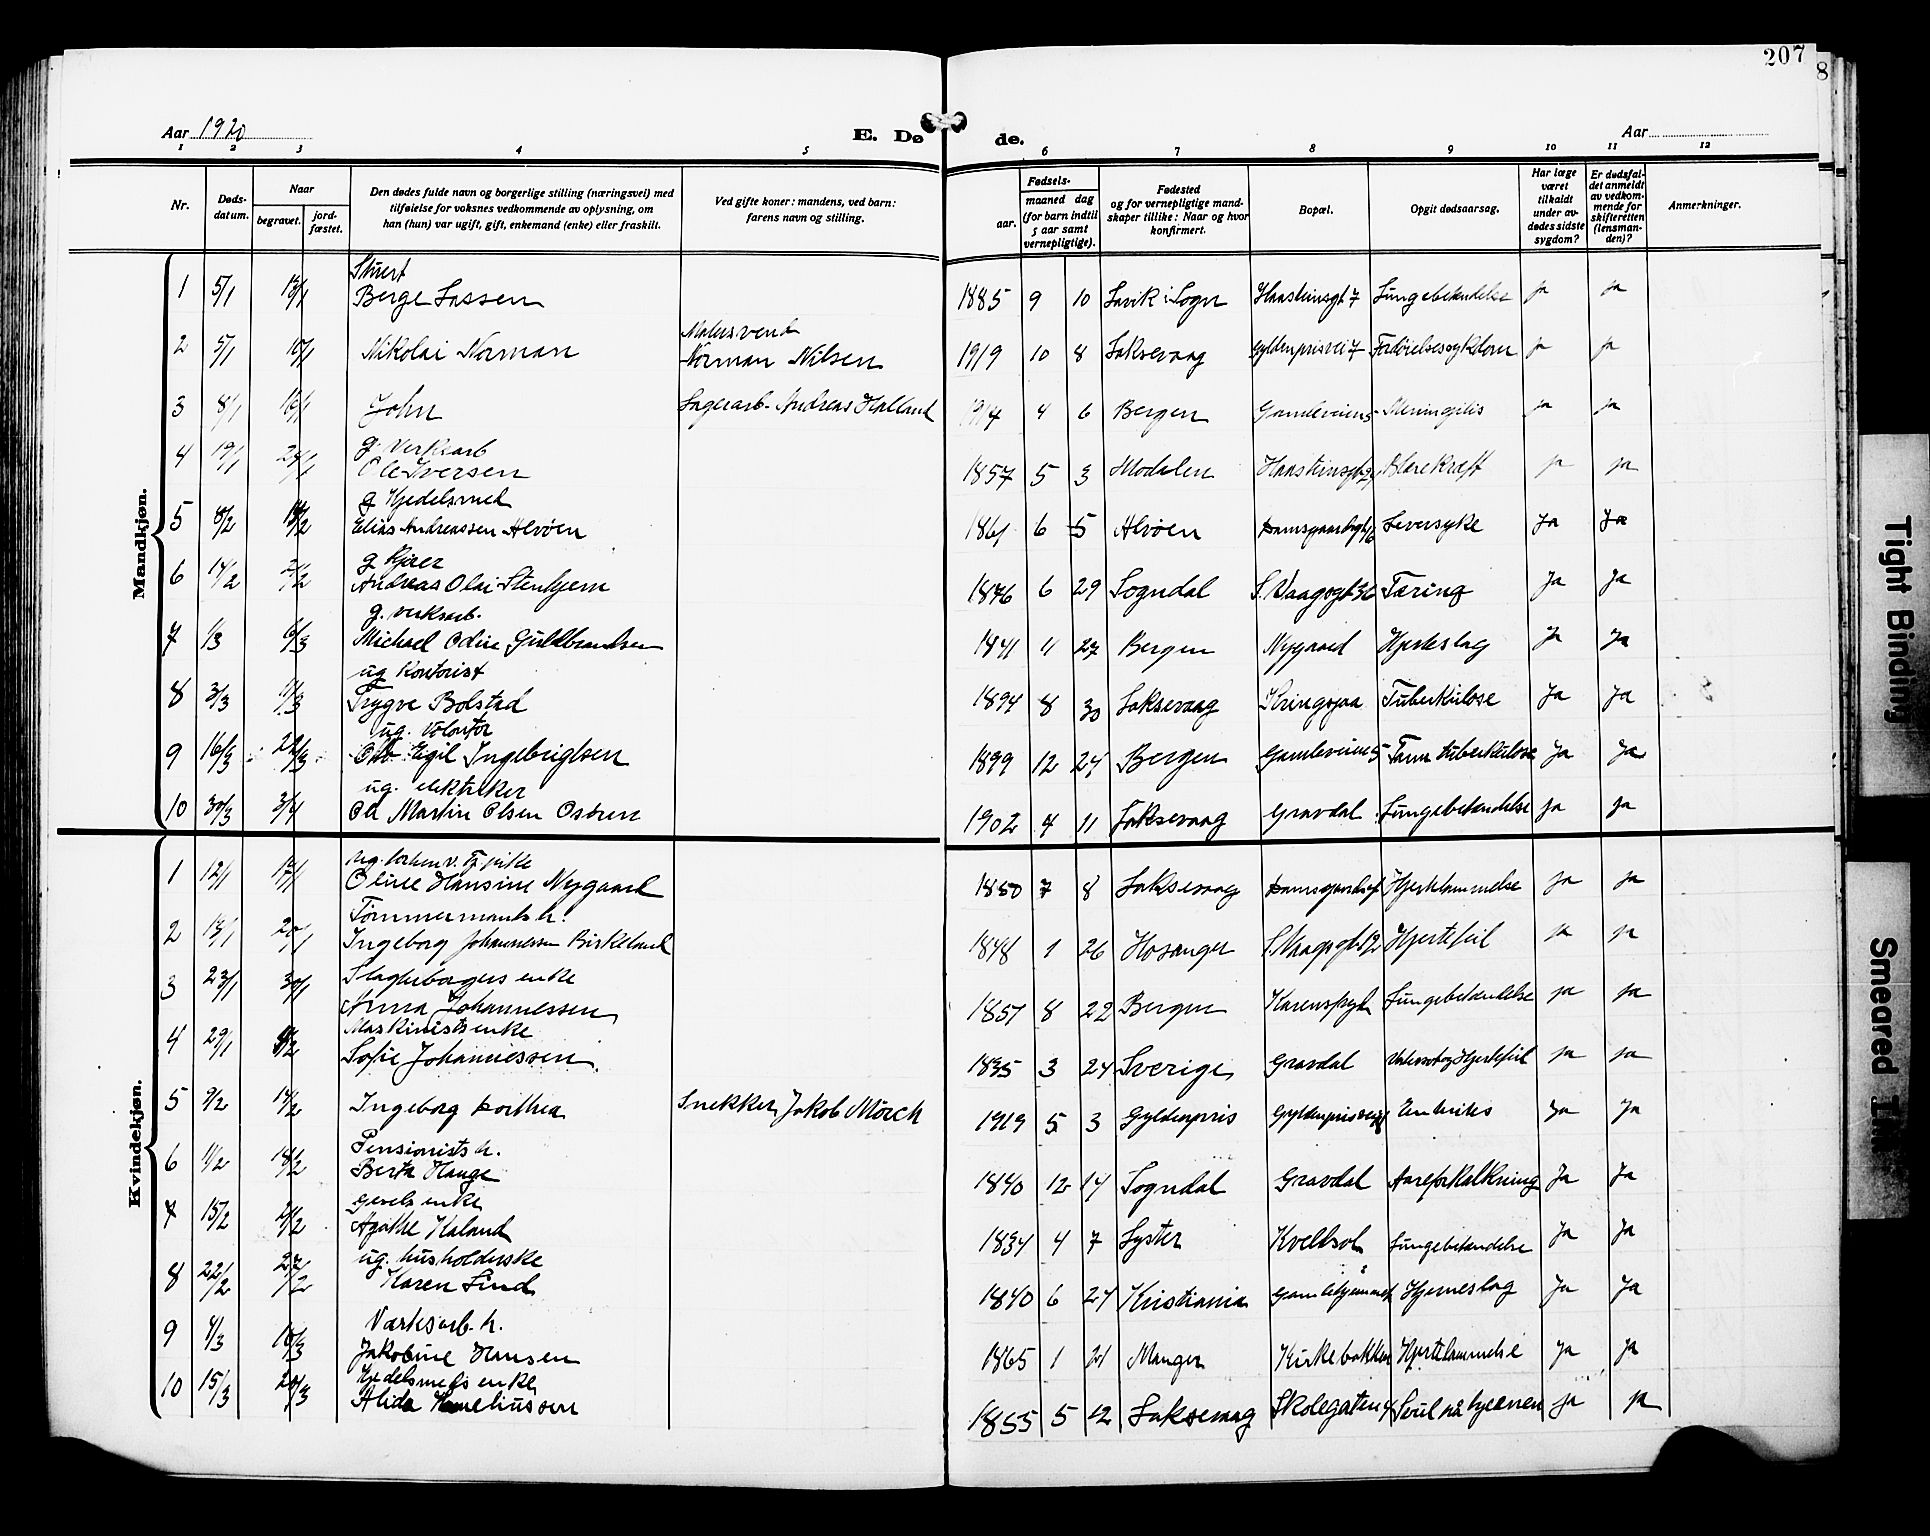 207
8
Aar 1920
E. Dø de.
Aar
1 2 3 4 5 6 7 8 9 10 11 12
Nr.
Døds-datum.
Naar
begravet.
jord-fæstet.
Den dødes fulde navn og borgerlige stilling (næringsvei) med tilføielse for voksnes vedkommende av oplysning, om han (hun) var ugift, gift, enkemand (enke) eller fraskilt.
Ved gifte koner: mandens, ved barn: farens navn og stilling.
Fødsels-
aar.
maaned dag
(for barn indtil 5 aar samt vernepligtige).
Fødested og for vernepligtige mand-skaper tillike: Naar og hvor konfirmert.
Bopæl.
Opgit dødsaarsag.
Har læge været tilkaldt under av-dødes sidste sygdom?
Er dødsfal-det anmeldt av vedkom-mende for skifteretten (lensman-den)?
Anmerkninger.
Mandkjøn.
Stuert
1 5/1 13/1 Berge Lassen 1885 9 10 Lavik i Sogn Haasteinsgt 7 Lungebetendelse ja ja
Malersvend
2 5/1 10/1 Nikolai Norman Norman Nilsen 1919 10 8 Laksevaag Gyldenprisvei 7 Fordøielsessykdom ja ja
3 8/1 16/1 John Lagerarb. Andreas Halland 1914 4 6 Bergen Gamleveien Meningitis ja ja
g. Verksarb
4 19/1 24/1 Ole Iversen 1857 5 3 Modalen Haasteinsgt Blærekræft ja ja
g Kjedelsmed
5 8/2 14/2 Elias Andreassen Alvøen 1861 6 5 Alvøen Damsgaardsgt Leversyke ja ja
g Kjører
6 14/2 21/2 Andreas Olai Stenhjem 1846 6 29 Sogndal S. Vaagsgt 36 Tæring ja ja
g. verksarb.
7 1/3 6/3 Michael Odin Guldbrandsen 1841 11 27 Bergen Nygaard Hjerteslag ja ja
ug Kontorist
8 3/3 11/3 Trygve Bolstad 1894 8 30 Laksevaag Kringsjaa Tuberkulose ja ja
ug. Volontør
9 16/3 22/3 Egil Ingebrigtsen 1899 12 24 Bergen Gamleveien 5 Tarm tuberkulose ja ja
ug. elektriker
10 30/3 3/4 Od Martin Olsen Osøren 1902 4 11 Laksevaag Gravdal Lungebetendelse ja ja
Kvindekjøn.
1 12/1 17/1 Oline Hansine Nygaard 1850 7 8 Laksevaag Damsgaardsgt Hjertelammelse ja ja
Tømmermands h.
2 13/1 20/1 Ingeborg Johannessen Birkeland 1848 1 26 Hosanger S. Vaagsgt 12 Hjertefeil ja ja
Slagterborgers enke
3 23/1 30/1 Anna Johannessen 1857 8 22 Bergen Lungebetendelse ja ja
Maskinists enke
4 29/1 Sofie Johannessen 1835 3 24 Sverige Gravdal Hjertefeil ja ja
5 9/2 14/2 Ingeborg Dorthea Snekker Jakob Mørch 1919 5 3 Gyldenpris Gyldenprisvei Enteritis ja ja
Pensionists h.
6 11/2 18/2 Berta Hauge 1840 12 14 Sogndal Gravdal Aareforkalkning ja ja
enke
7 15/2 21/2 Agathe Kaland 1834 4 7 Lyster Kveldsol Lungebetendelse ja ja
ug. husholderske
8 22/2 27/2 Karen Lind 1840 6 24 Kristiania Gamlehjemmet Hjerneslag ja ja
Værksarb. h.
9 4/3 10/3 Jakobine Hansen 1865 1 21 Manger Kirkebakken Hjertelammelse ja ja
Kjedelsmeds enke
10 15/3 20/3 Alida Korneliussen 1855 5 12 Laksevaag Skolegaten 4 Svul på hjernen ja ja
Tight Binding
Smeared Ink